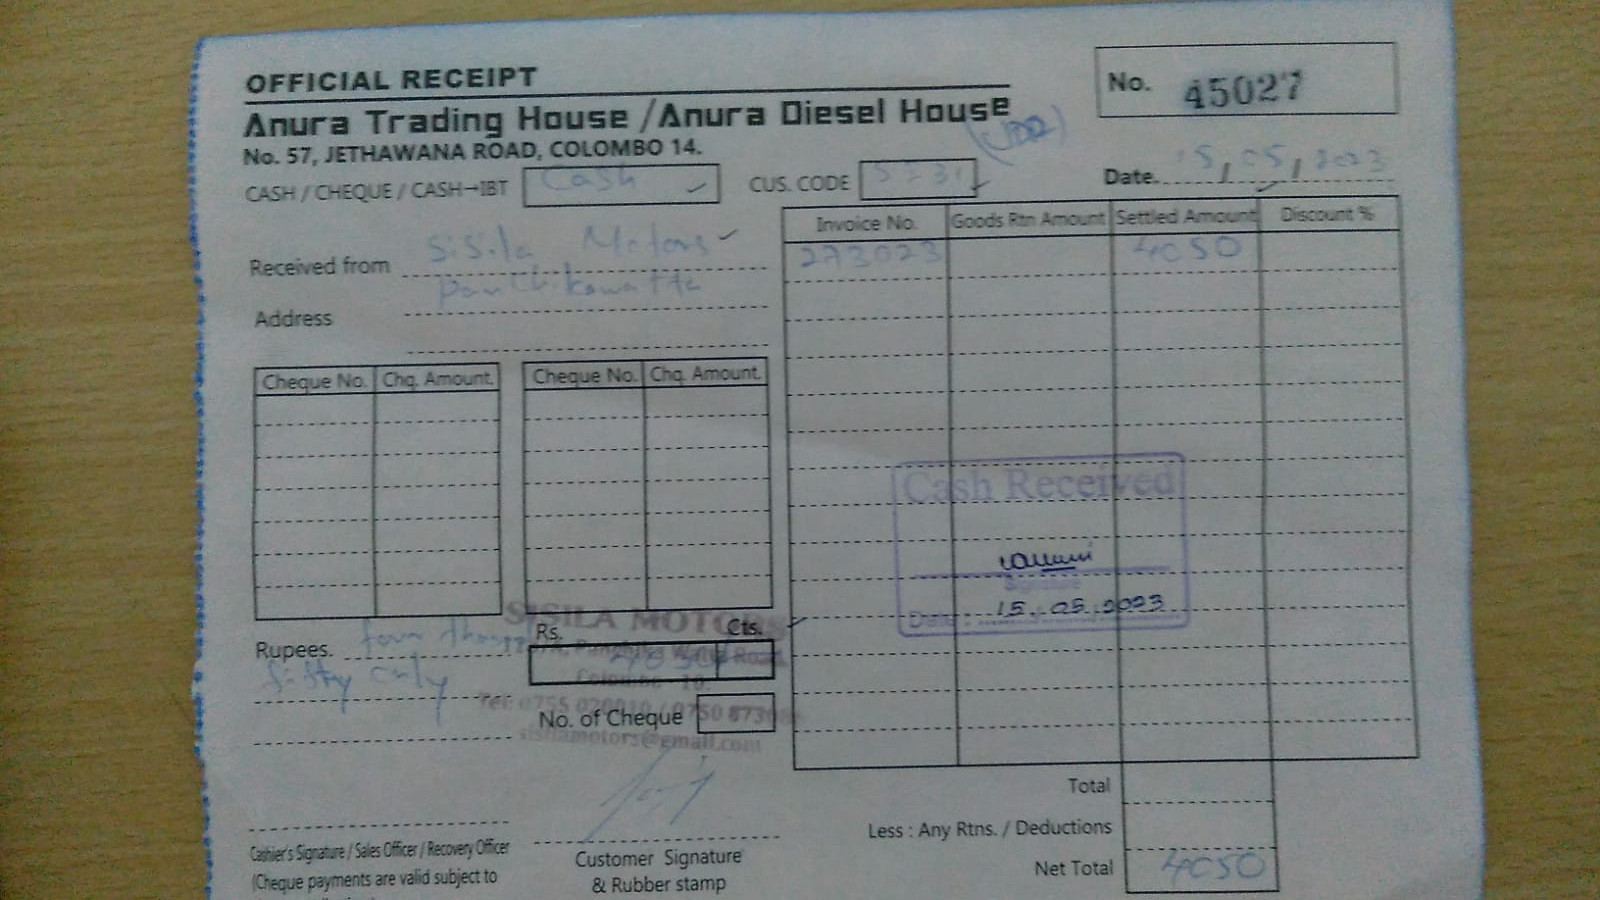 OFFICIAL RECEIPT
No. 45027
Anura Trading House / Anura Diesel House
No. 57, JETHAWANA ROAD, COLOMBO 14.
CASH / CHEQUE / CASH→IBT Cash
CUS. CODE
Date. 15, 05, 2023
Invoice No. Goods Rtn Amount Settled Amount Discount %
273023 4050
Received from Sisila Motors
Panchikawatta
Address
Cheque No. Chq. Amount. Cheque No. Chq. Amount.
Cash Received
Signature
Date : 15.05.2023
SISILA MOTORS
Rs. Cts.
Rupees. four
fifty only
Colombo - 10.
Tel: 0755
No. of Cheque
sisilamotors@gmail.com
Total
Less : Any Rtns. / Deductions
Net Total 4050
Cashier's Signature / Sales Officer / Recovery Officer
(Cheque payments are valid subject to
Customer Signature
& Rubber stamp